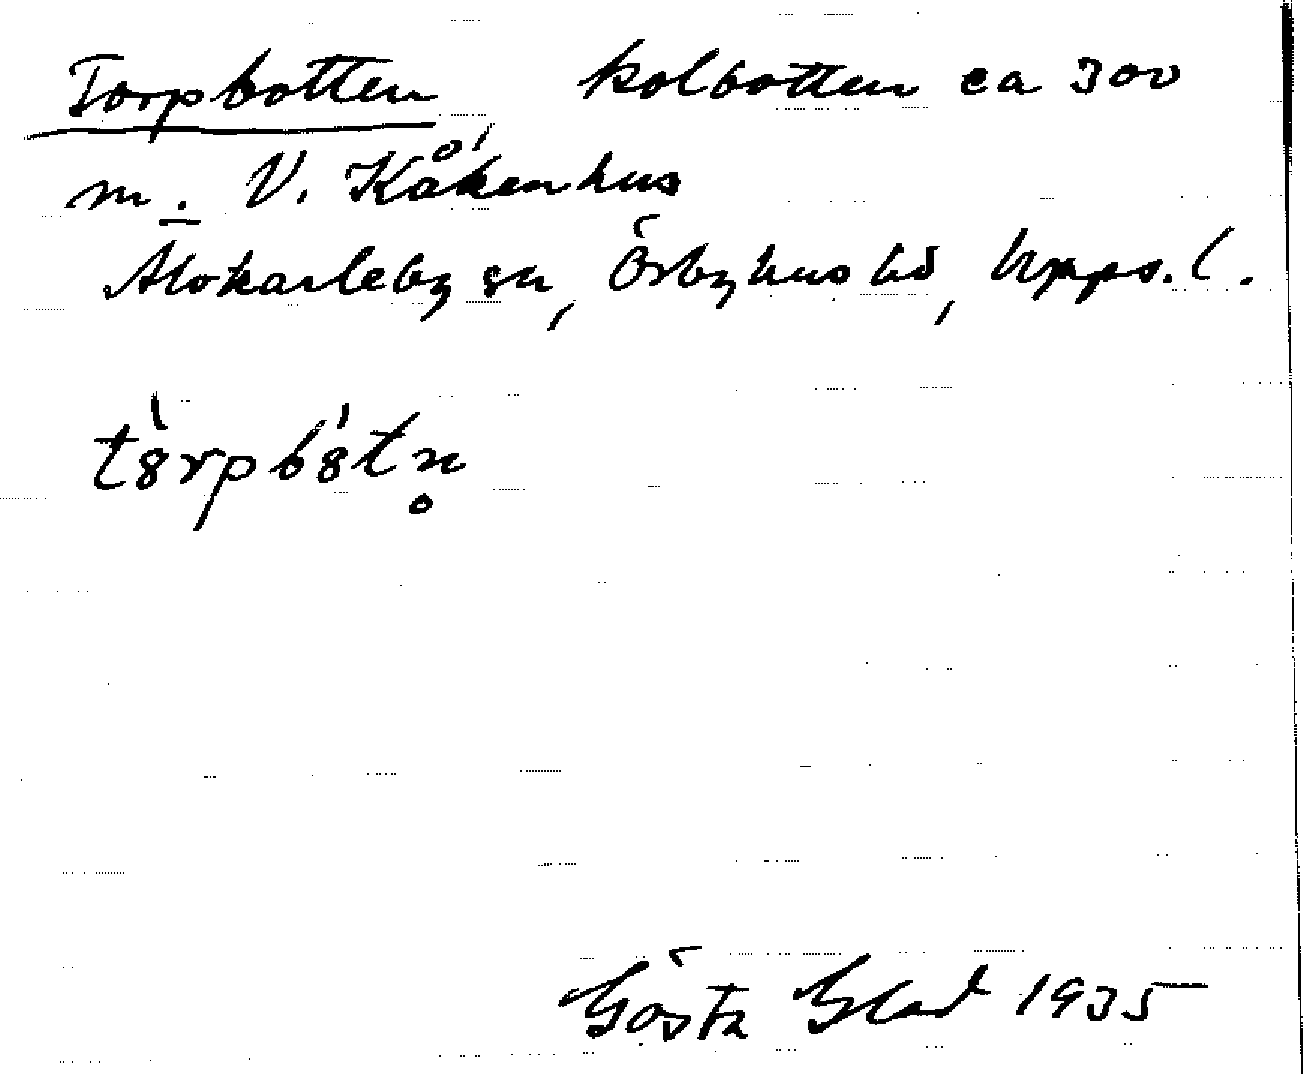 Torpbotten, kolbotten ca 300
m. V. Kåkenhus
Älvkarleby sn, Örbyhus hd, Upps. l.
tȯrpbȯtn̥
Gösta Blad 1935